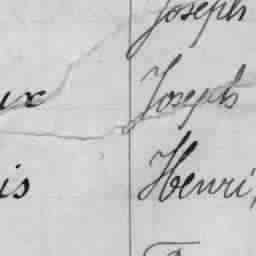 Joseph
ux Joseph
is Henri,